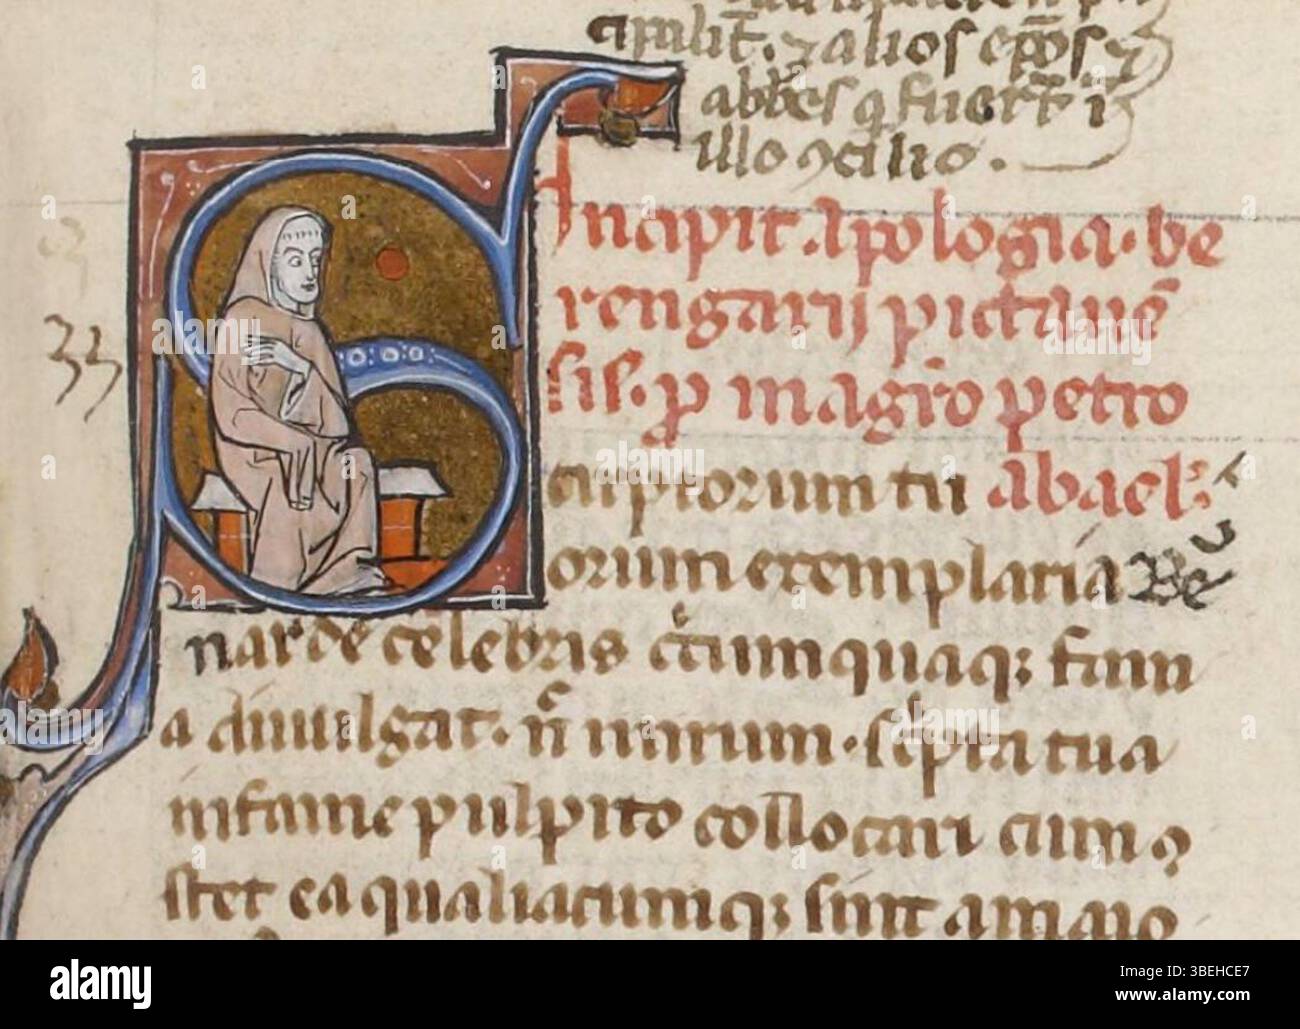 cipalit̄. ⁊ alios ep̄os ⁊
abb̄es q̇ fuer̄t ī
illo ꝯcilio.
Incipit apologia. be
rengarij pictaue͞
sis. ꝓ magr̄o petro
abael'.
33
Scriptorum tu
orum exemplaria Be
narde celebris c̄tium quaqꝫ fam
a diuulgat. n̄ mirum. sc̄pta tua
in fame pulpito collocari cum ꝯ
stet ea qualiacumqꝫ sint a maio
alamy
Image ID: 3BEHCE7
www.alamy.com